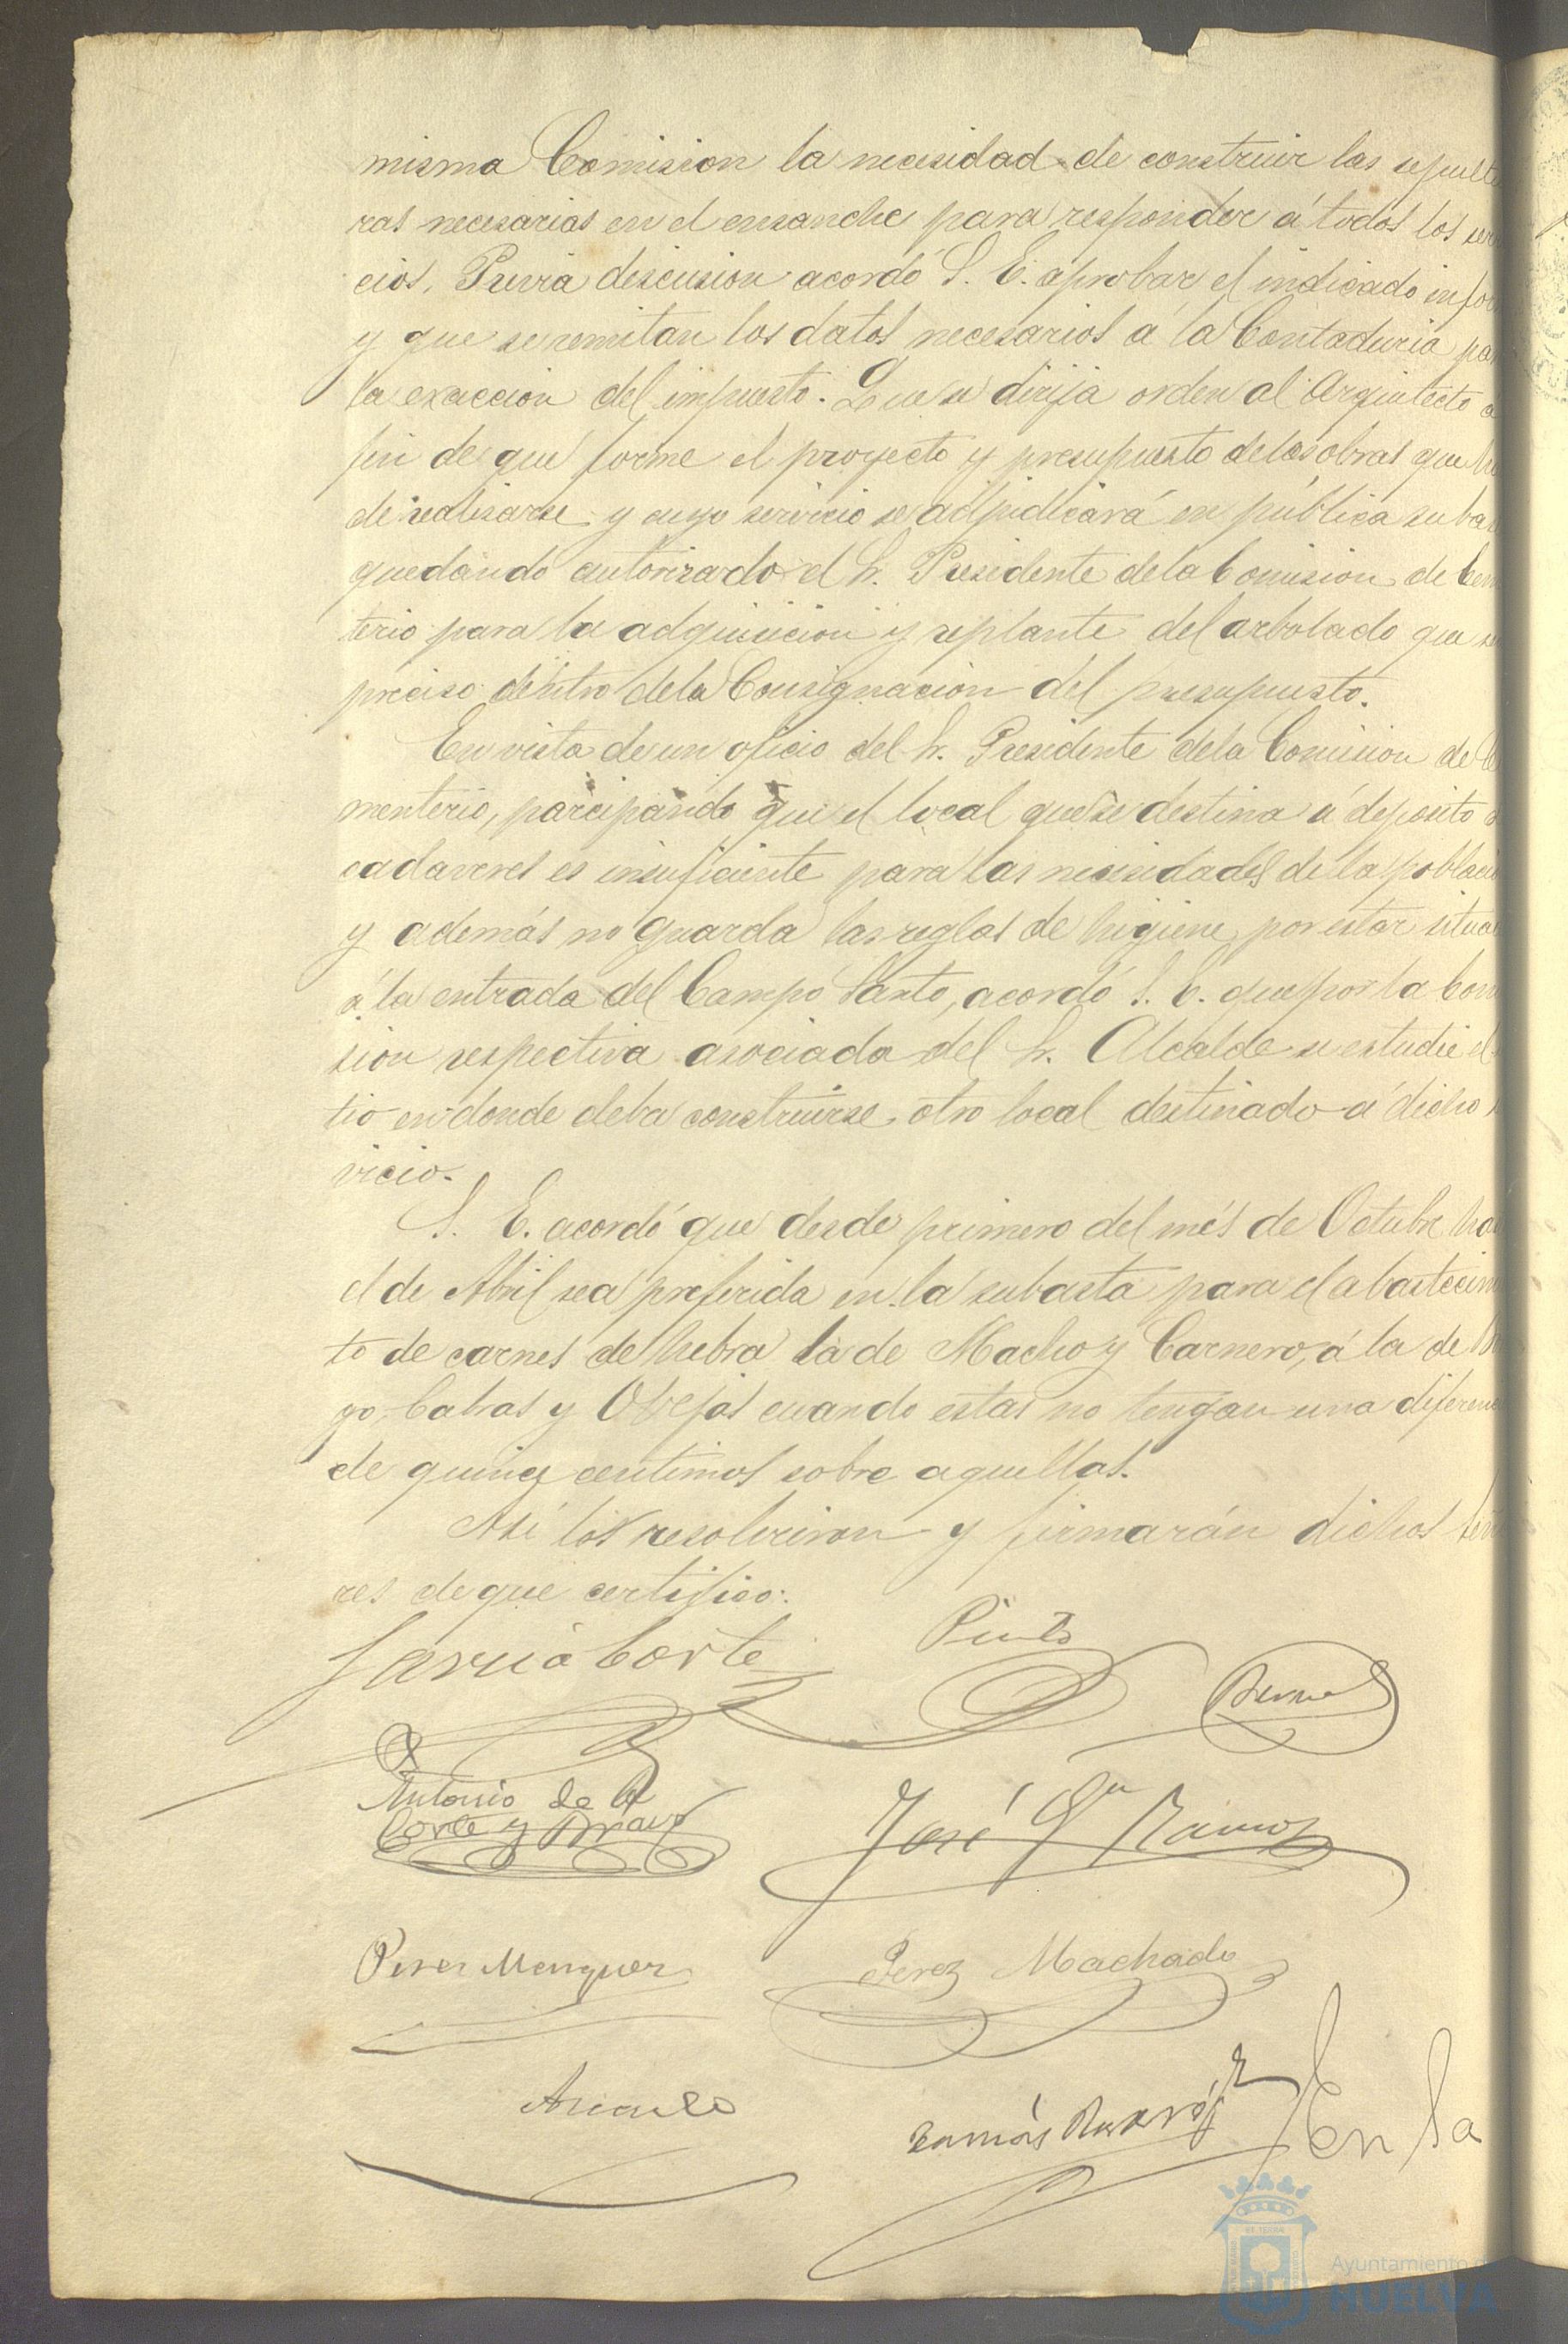 misma Comision la necesidad de construir las sepultu
ras necesarias en el ensanche para responder á todos los ser
cios. Previa descusion acordó S. E. aprobar el indicado infor
y que se remitan los datos necesarios á la Contaduria pa
la exaccion del impuesto. Que se dirija orden al Arquitecto a
fin de que forme el proyecto y presupuesto de las obras que h
de realisarse y cuyo servicio se adjudicará en pública suba
quedando autorizado el Sr. Presidente de la Comision de Cem
terio para la adquisicion y replante del arbolado que s
preciso dentro de la Consignacion del presupuesto.
En vista de un oficio del Sr. Presidente de la Comision de Ce
menterio, parcipando que el local que se destina á deposito d
cadaveres es insuficiente para las necesidades de la poblacio
y además no guarda las reglas de higiene por estar situa
á la entrada del Campo Santo, acordó S. E. que por la Comi
sion respectiva asociada del Sr. Alcalde se estudie el s
tio en donde deba construirse otro local destinado á dicho s
vicio.
S. E. acordó que desde primero del més de Octubre ha
el de Abril sea preferida en la subasta para el abastecim
to de carnes de hebra la de Macho y Carnero, á la de Bo
go, Cabras y Obejas cuando estas no tengan una diferenc
de quince centimos sobre aquellas.
Así los resolvieron y firmarán dichos Seño
res de que certifico:
Garcia Corte
Pinto
Bernal
Antonio de la
Corte y Bravo
José Ga Ramos
Perez Menguer
Perez Machado
Tomás
En la
Ayuntamiento d
HUELVA